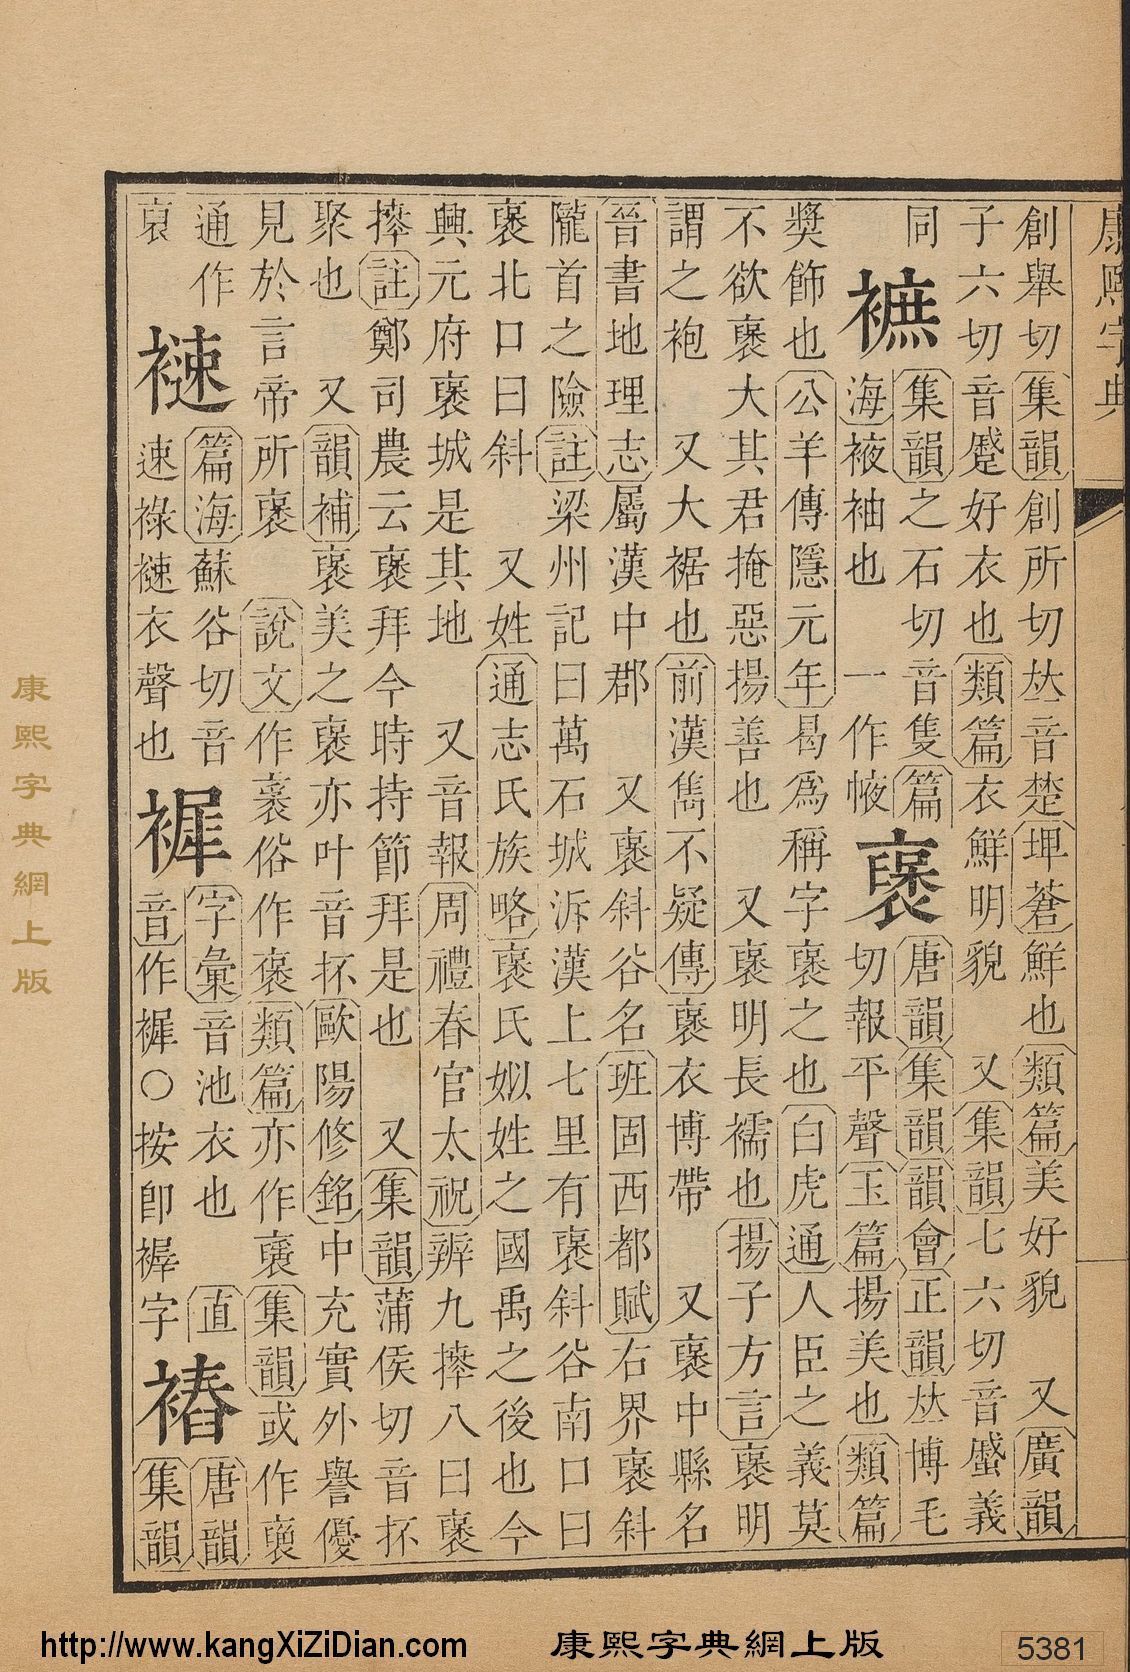 康熙字典
創舉切集韻創所切𠀤音楚埤蒼鮮也類篇美好貌　又廣韻
子六切音蹙好衣也類篇衣鮮明貌　又集韻七六切音蹙義
同
襹
集韻之石切音隻篇
海袯袖也　一作帔
襃
唐韻集韻韻會正韻𠀤博毛
切報平聲玉篇揚美也類篇
獎飾也公羊傳隱元年曷爲稱字襃之也白虎通人臣之義莫
不欲襃大其君掩惡揚善也　又襃明長襦也揚子方言襃明
謂之袍　又大裾也前漢雋不疑傳襃衣博帶　又襃中縣名
晉書地理志屬漢中郡　又襃斜谷名班固西都賦右界襃斜
隴首之險註梁州記曰萬石城泝漢上七里有襃斜谷南口曰
襃北口曰斜　又姓通志氏族略襃氏姒姓之國禹之後也今
興元府襃城是其地　又音報周禮春官太祝辨九㩺八曰襃
㩺註鄭司農云襃拜今時持節拜是也　又集韻蒲侯切音抔
聚也　又韻補襃美之襃亦叶音抔歐陽修銘中充實外譽優
見於言帝所襃　說文作𧝽俗作褒類篇亦作襃集韻或作裒
通作
裒
𧛼
篇海蘇谷切音
速𧙾𧛼衣聲也
𧛧
字彙音池衣也　直
音作𧛧○按卽褫字
𧛸
唐韻
集韻
康熙字典網上版
http://www.kangXiZiDian.com
康熙字典網上版
5381